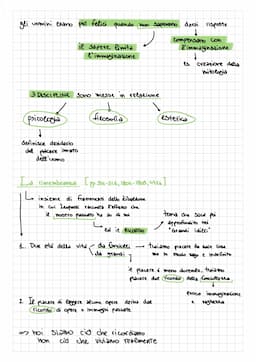 gli uomini erano più felici quando non sapevano darsi risposte
il sapere limita l'immaginazione
compensavano con l'immaginazione
es. creazione della mitologia
3 DISCIPLINE sono messe in relazione
psicologia
filosofia
estetica
definisce desiderio del piacere innato dell'uomo
La rimembranza
insieme di frammenti dello Zibaldone in cui Leopardi racconta l'effetto che il nostro passato ha su di noi
ed il Ricordo
tema che sarà poi approfondito nei "Grandi idilli"
1. Due età della vita
da fanciulli
troviamo piacere in modo vago e indefinito
da grandi
il piacere è meno duraturo, troviamo piacere dal ricordo della fanciullezza
immaginazione e
2. Il piacere di leggere alcune opere deriva dal ricordo di opere o immagini passate
=> noi siamo ciò che ricordiamo
non ciò che viviamo realmente